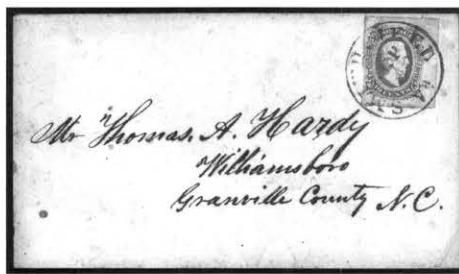 Mr Thomas. A. Hardy
Williamsboro
Granville County N.C.